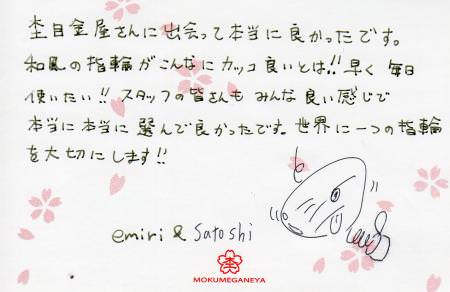 杢目金屋さんに出会って本当に良かったです。
和風の指輪がこんなにカッコ良いとは!! 早く毎日
使いたい!! スタッフの皆さんもみんな良い感じで
本当に本当に選んで良かったです。世界に一つの指輪
を大切にします!!
emiri & Satoshi
杢
MOKUMEGANEYA